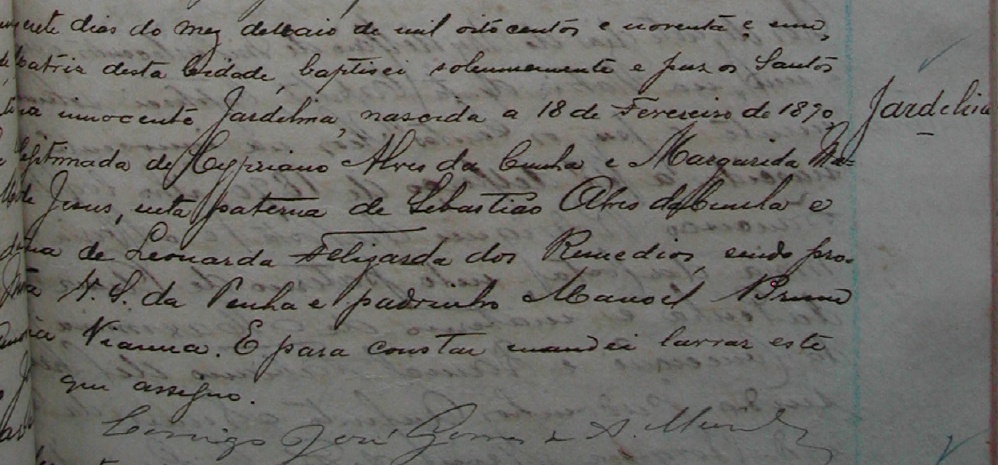 dias do mez de Maio de mil oitocentos e noventa e um,
Matriz desta Cidade, baptisei solemnemente e puz os Santos
innocente Jardelina, nascida a 18 de Fevereiro de 1890,
Jardelina
legitimada de Cypriano Alves da Cunha e Margarida Ma-
de Jesus, neta paterna de Sebastião Alves da Cunha e
de Leonarda Feligarda dos Remedios, sendo pro-
N. S. da Penha e padrinho Manoel Bruno
Vianna. E para constar mandei lavrar este
que assigno.
Conego José Gomes de A.